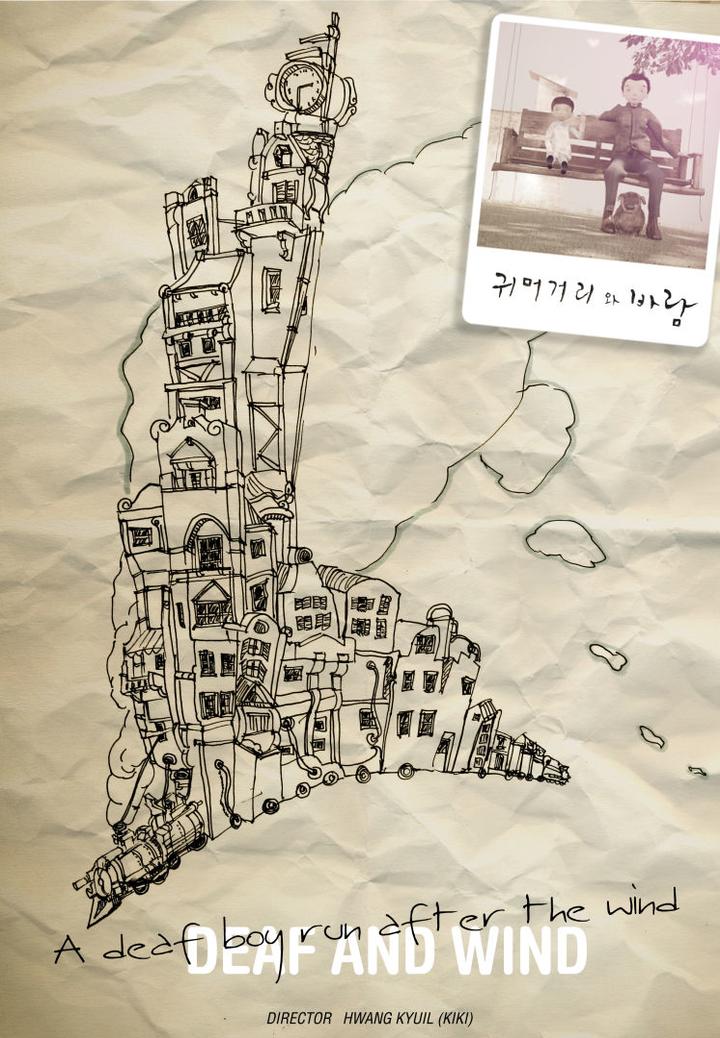 귀머거리 와 바람
A deaf boy run after the wind
DEAF AND WIND
DIRECTOR HWANG KYUIL (KIKI)